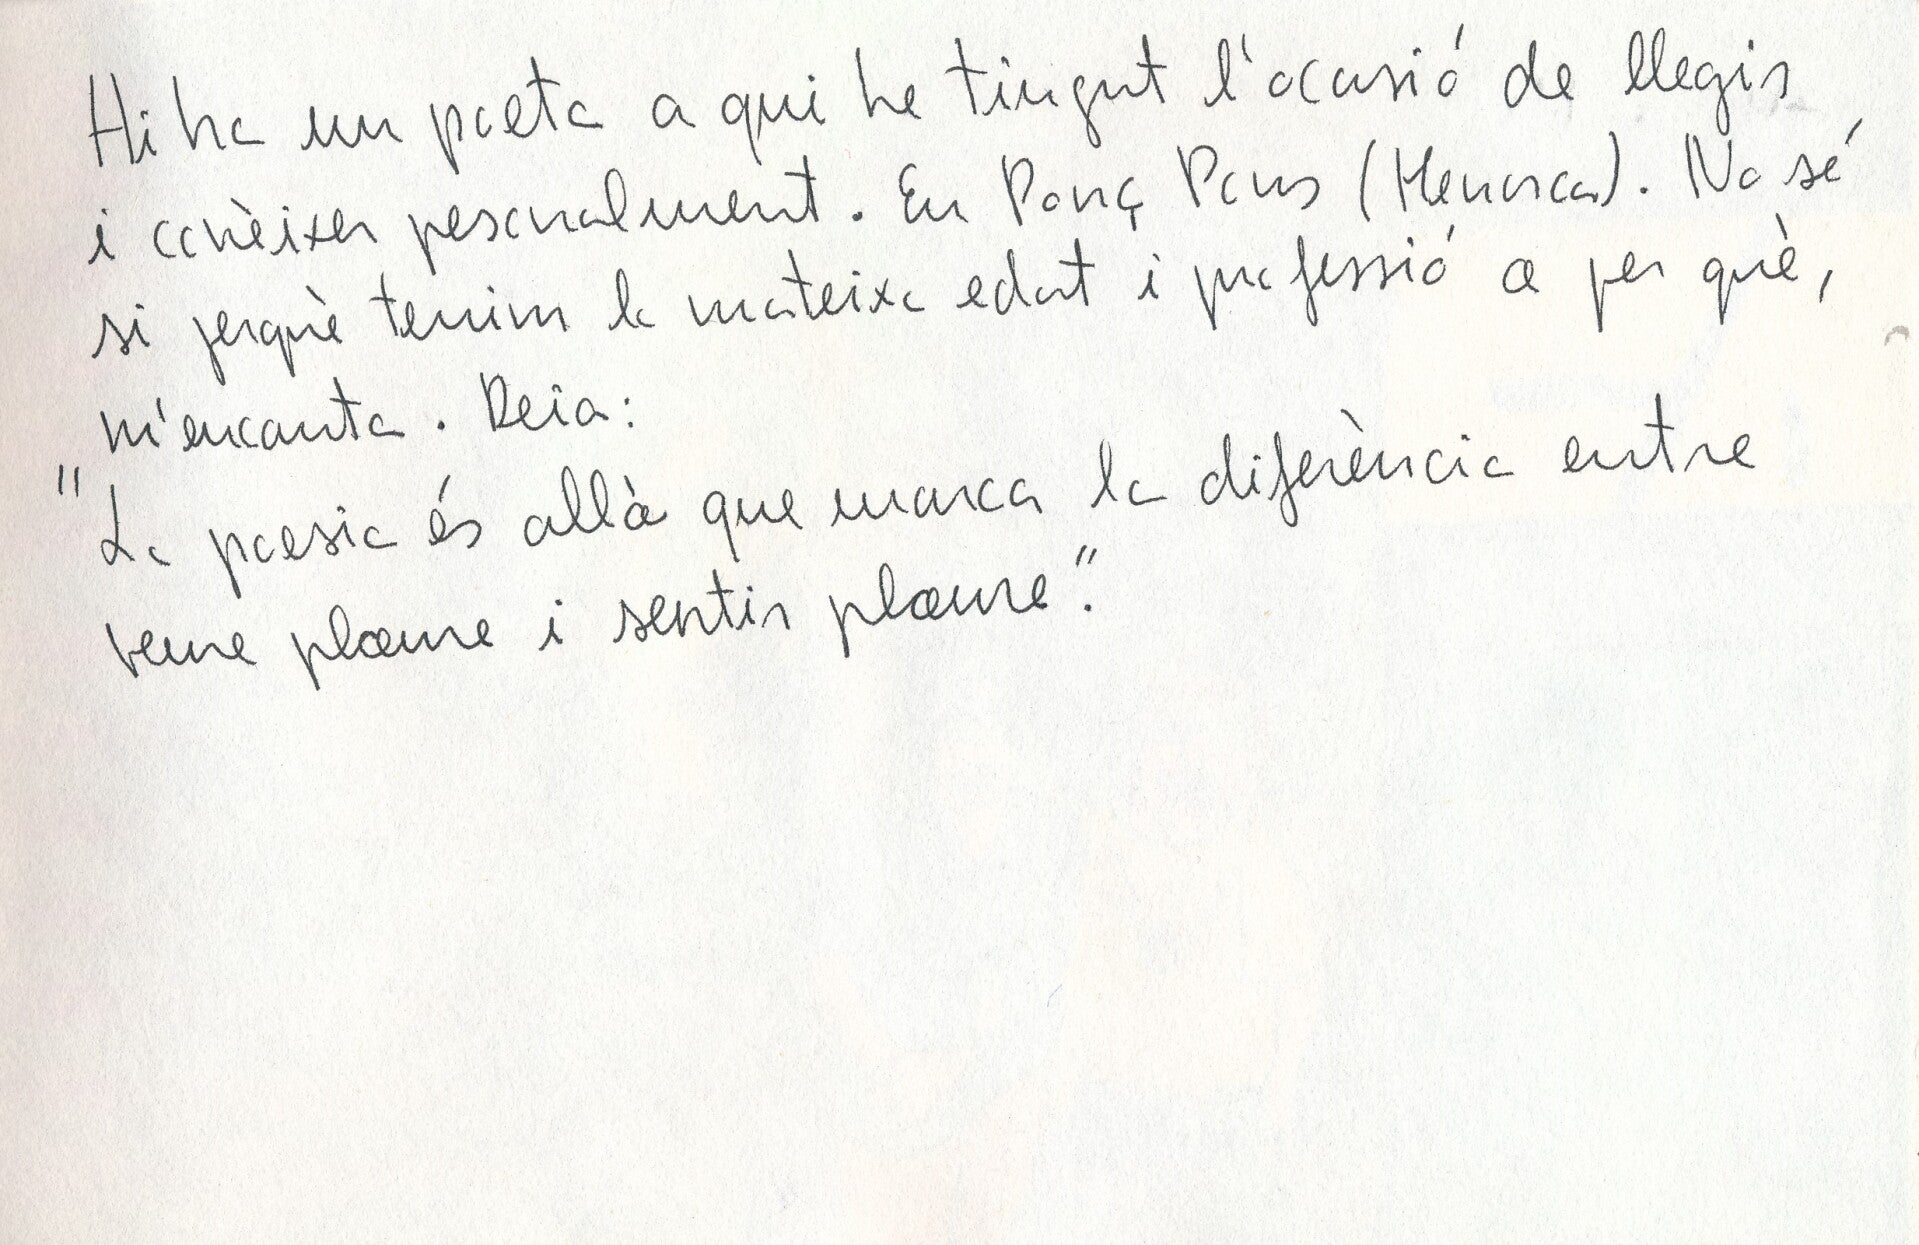 Hi ha un poeta a qui he tingut l'ocasió de llegir
i conèixer pesonalment. En Ponç Pons (Menorca). No sé
si perquè tenim la mateixa edat i professió o per què,
m'encanta. Deia:
"La poesia és allò que marca la diferència entre
veure ploure i sentir ploure".